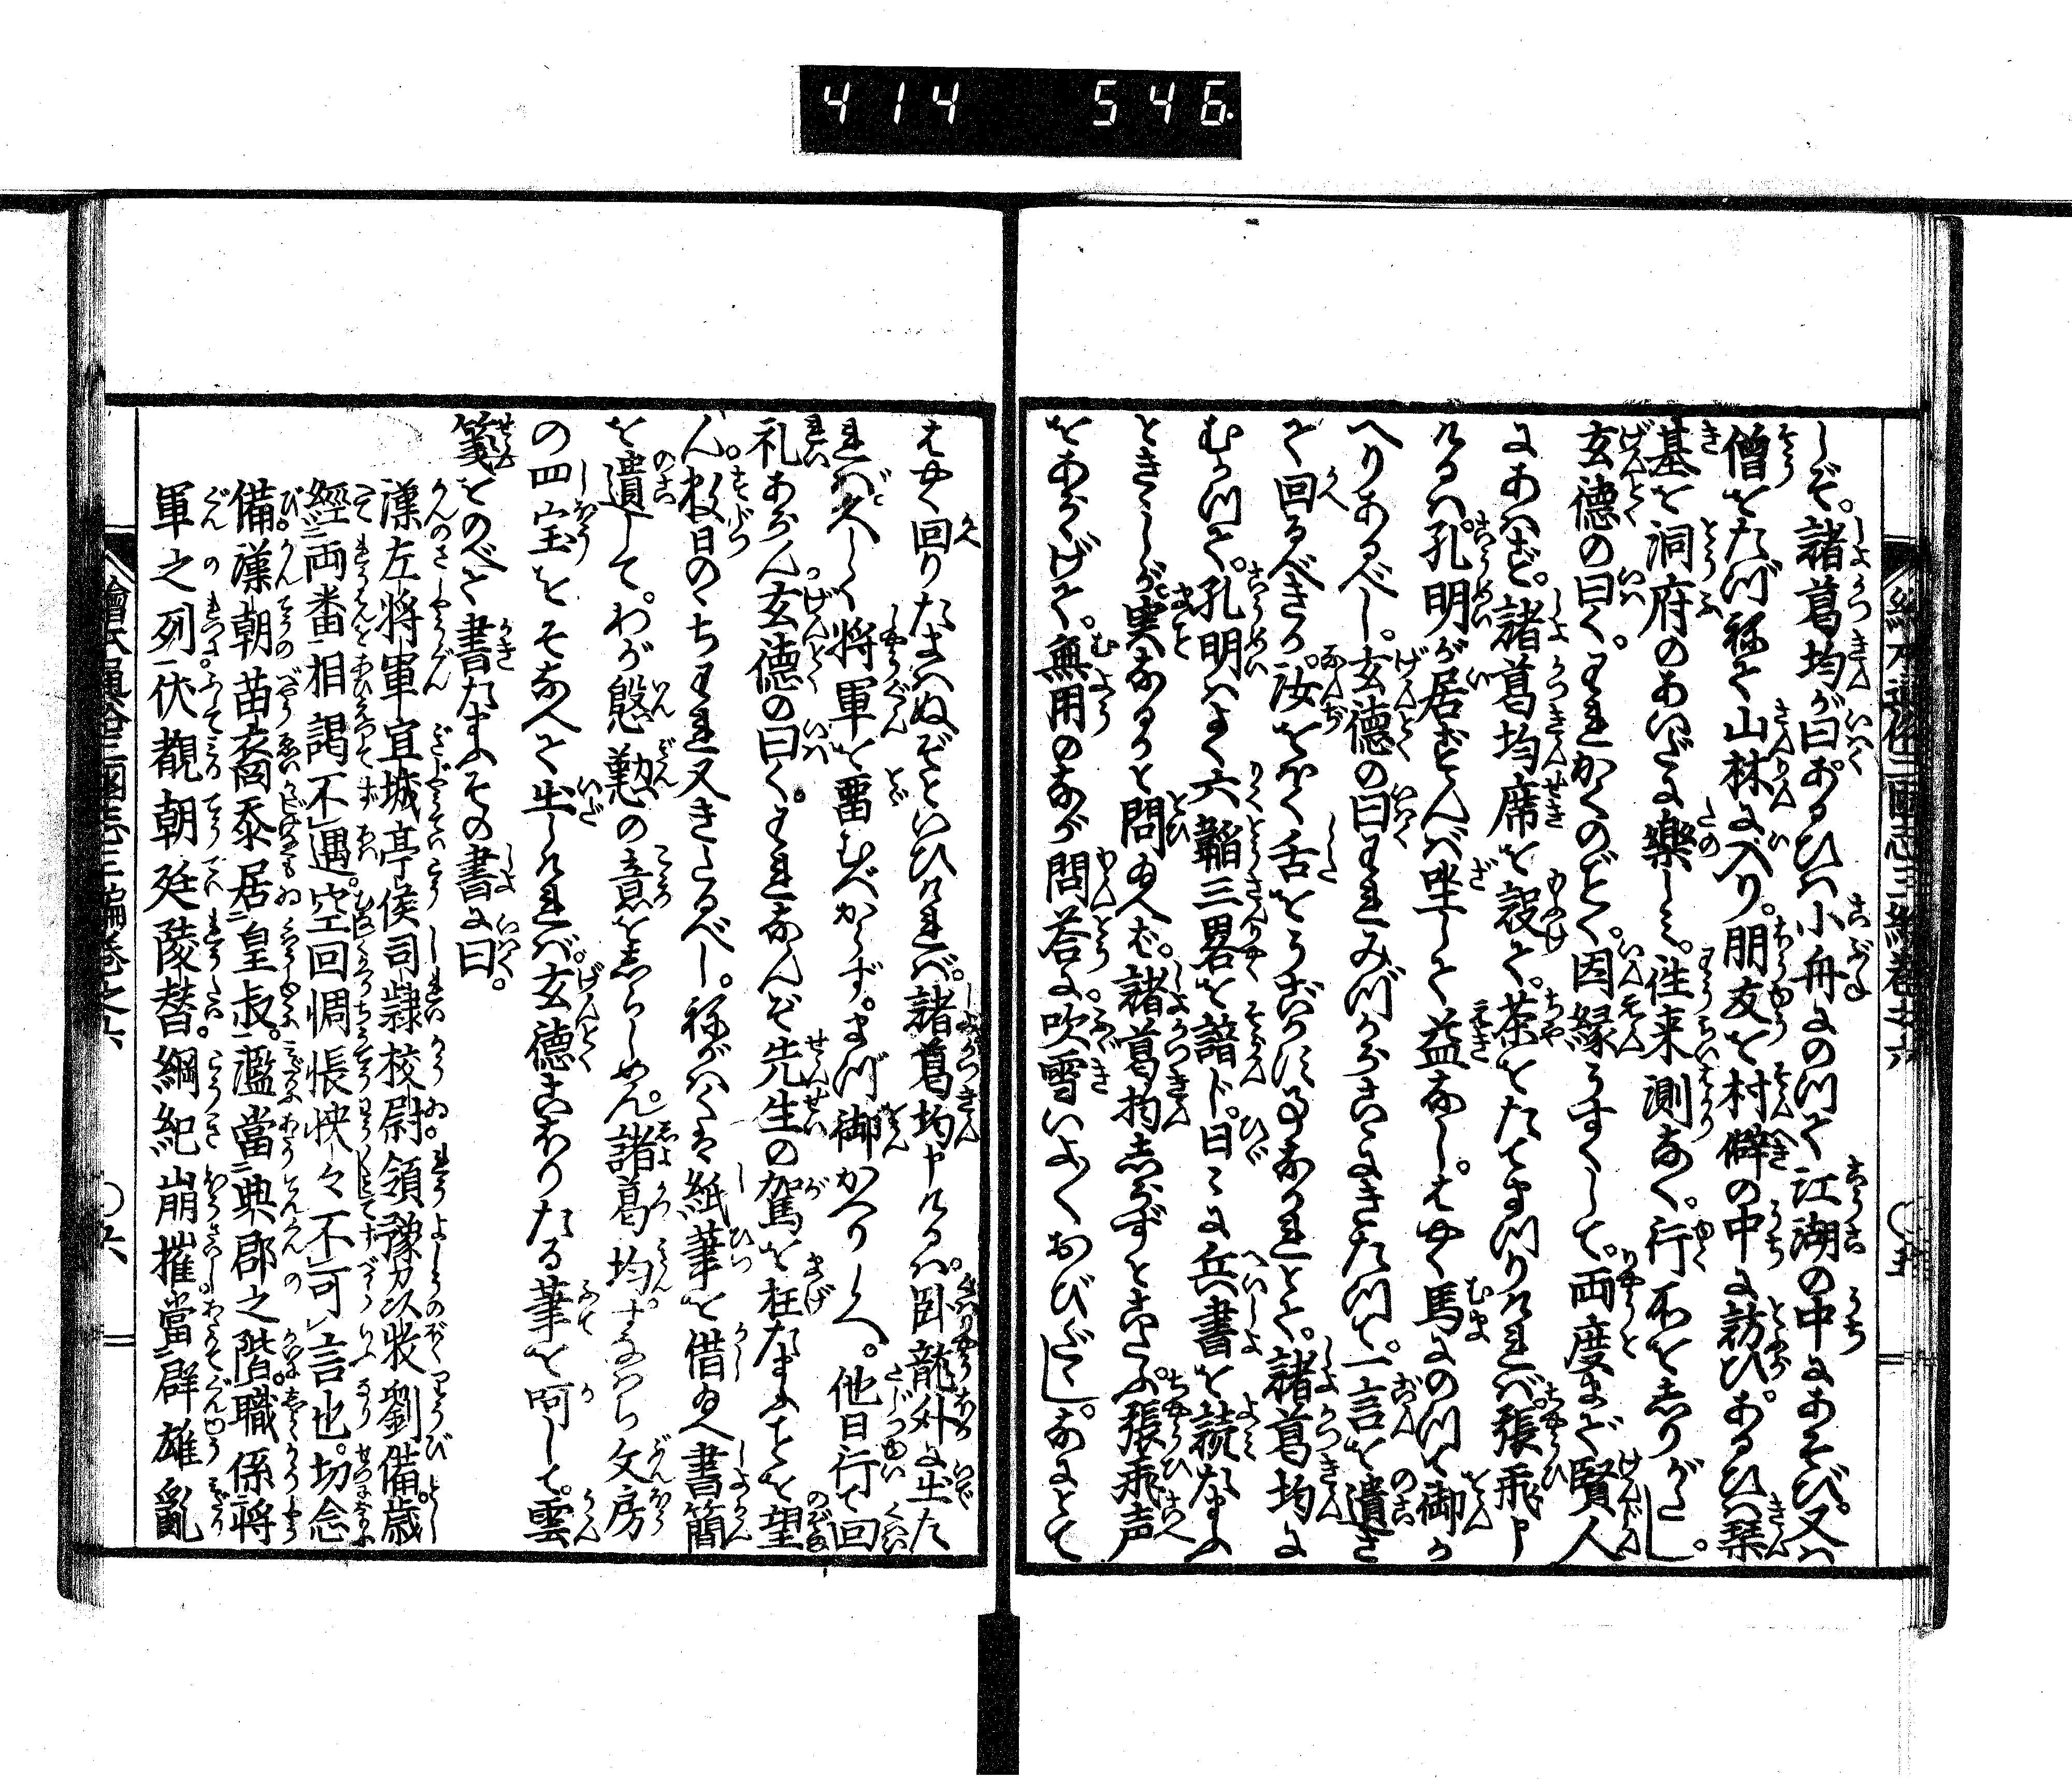 414 546
しぞ。諸葛均が曰あるひハ小舟にのりて江湖の中にあそび。又ハ
僧をたづねて山林に入り。朋友を村僻の中に訪ひ。あるひハ琴
碁を洞府のあいだに樂しミ。往来測なく。行所をしりがたし。
玄德の曰く。われかくのごとく。因縁うすくして。両度まで賢人
にあハざる。諸葛均席を設て。茶をたてまつりけれバ。張飛申
けるハ孔明が居ざんバ坐して益なし。はやく馬にのりて御か
へりあるべし。玄德の曰われみづからきたりて。一言を遺さ
で回るべきか。汝をく舌をうごかすことなかれとて。諸葛均に
むかひて。孔明ハよく六韜三畧を諳じ。日ゝに兵書を読たまふ
ときゝしが実なるかと問ゐへば。諸葛均しらずとこたふ。張飛声
をあらげて。無用のなが問荅に。吹雪いよくおびたゝし。なにとて
はやく回りたまハぬぞといひけれバ。諸葛均申けるハ。臥龍外に出た
れバ久しく将軍を畱むべからず。まづ御かへりしへ。他日行て回
礼あらん。玄德の曰く。われなんぞ先生の駕を枉たまふことを望
ん。数日のゝちわれ又きたるべし。ねがハくハ紙筆を借ゐへ書簡
を遺して。わが慇懃の意をしらしめん。諸葛均。すなハち文房
の四宝をそなへて出しけれバ。玄德こおりたる筆を呵して。雲
箋をのべて書たまふその書に曰。
漢左将軍宜城亭侯司隷校尉領豫州牧劉備。歳
經両番相謁不遇。空回惆悵怏々不可言也。切念
備漢朝苗裔忝居皇叔。濫當典郡之階。職係将
軍之列伏覩朝廷陵替。綱紀崩摧當群雄亂
繪本通俗三國志三編巻之六
〇五